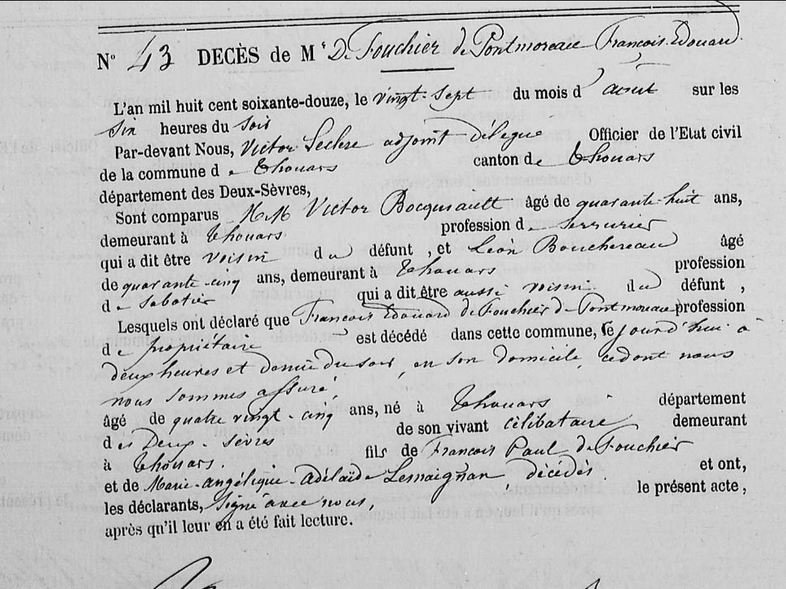 N° 43 DECÈS de Mr De Fouchier de Pontmoreau François Edouard
L'an mil huit cent soixante-douze, le vingt-sept du mois d'août sur les
six heures du soir
Par-devant Nous, Victor Leclerc adjoint délégué Officier de l'Etat civil
de la commune de Thouars canton de Thouars
département des Deux-Sèvres,
Sont comparus MM Victor Bocquiault âgé de quarante-huit ans,
demeurant à Thouars profession de serrurier
qui a dit être voisin du défunt, et Léon Bouchereau âgé
de quarante-cinq ans, demeurant à Thouars profession
de sabotier qui a dit être aussi voisin du défunt,
Lesquels ont déclaré que François Edouard de Fouchier de Pontmoreau profession
de propriétaire est décédé dans cette commune, ce jourd'hui à
deux heures et demie du soir, en son domicile, ce dont nous
nous sommes assuré,
âgé de quatre vingt-cinq ans, né à Thouars département
des Deux-Sèvres de son vivant célibataire demeurant
à Thouars. fils de François Paul de Fouchier
et de Marie-angélique-Adélaïde Lemaignan, décédés. et ont,
les déclarants, signé avec nous, le présent acte,
après qu'il leur en a été fait lecture.